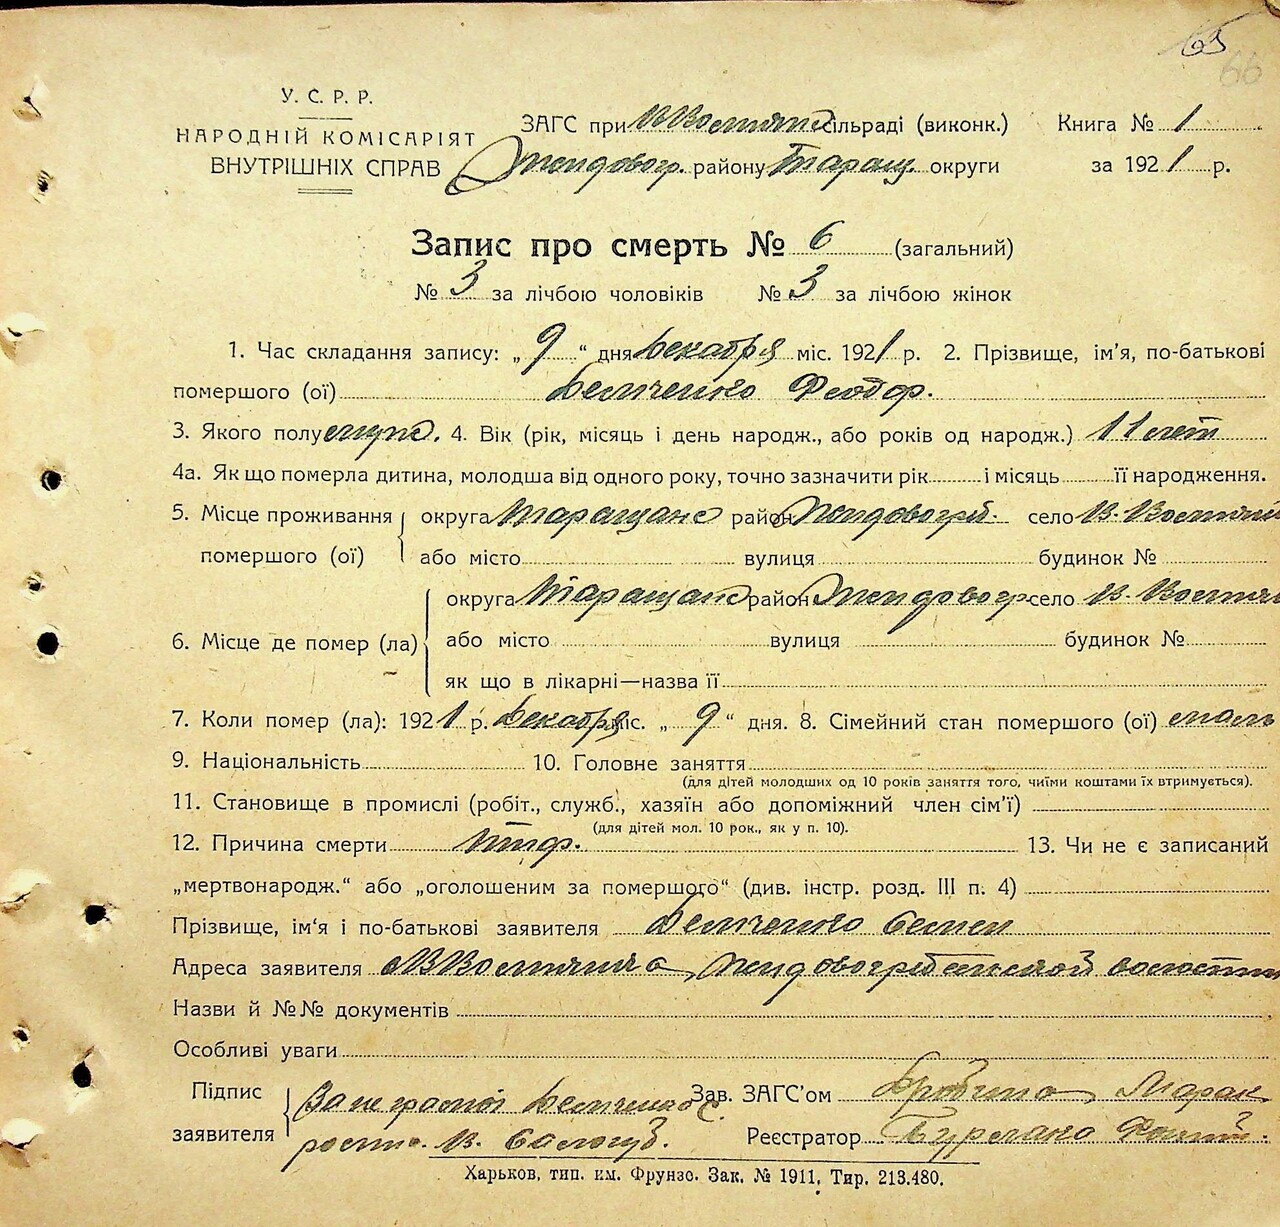 65
66
У. С. Р. Р.
НАРОДНІЙ КОМІСАРІЯТ
ВНУТРІШНІХ СПРАВ
ЗАГС при сільраді (виконк.) Книга № 1
району Таращ. округи за 1921 р.
Запис про смерть № 6 (загальний)
№ 3 за лічбою чоловіків № 3 за лічбою жінок
1. Час складання запису: „ 9 “ дня Декабря міс. 1921 р. 2. Прізвище, ім'я, по-батькові
помершого (ої) Демченко Феодор.
3. Якого полу 4. Вік (рік, місяць і день народж., або років од народж.) 11 лет
4а. Як що померла дитина, молодша від одного року, точно зазначити рік і місяць її народження.
5. Місце проживання помершого (ої) округа Таращанс район село
або місто вулиця будинок №
6. Місце де помер (ла) округа Таращанс район село
або місто вулиця будинок №
як що в лікарні—назва її
7. Коли помер (ла): 1921 р. Декабря міс. „ 9 “ дня. 8. Сімейний стан помершого (ої)
9. Національність 10. Головне заняття
(для дітей молодших од 10 років заняття того, чиїми коштами їх втримується).
11. Становище в промислі (робіт., служб., хазяїн або допоміжний член сім'ї)
(для дітей мол. 10 рок., як у п. 10).
12. Причина смерти Тиф. 13. Чи не є записаний
„мертвонародж.“ або „оголошеним за помершого“ (див. інстр. розд. III п. 4)
Прізвище, ім'я і по-батькові заявителя Демченко Семен
Адреса заявителя волости
Назви й №№ документів
Особливі уваги
Підпис заявителя Демченко С. Зав. ЗАГС'ом
Реєстратор
Харьков, тип. им. Фрунзе. Зак. № 1911. Тир. 213.480.